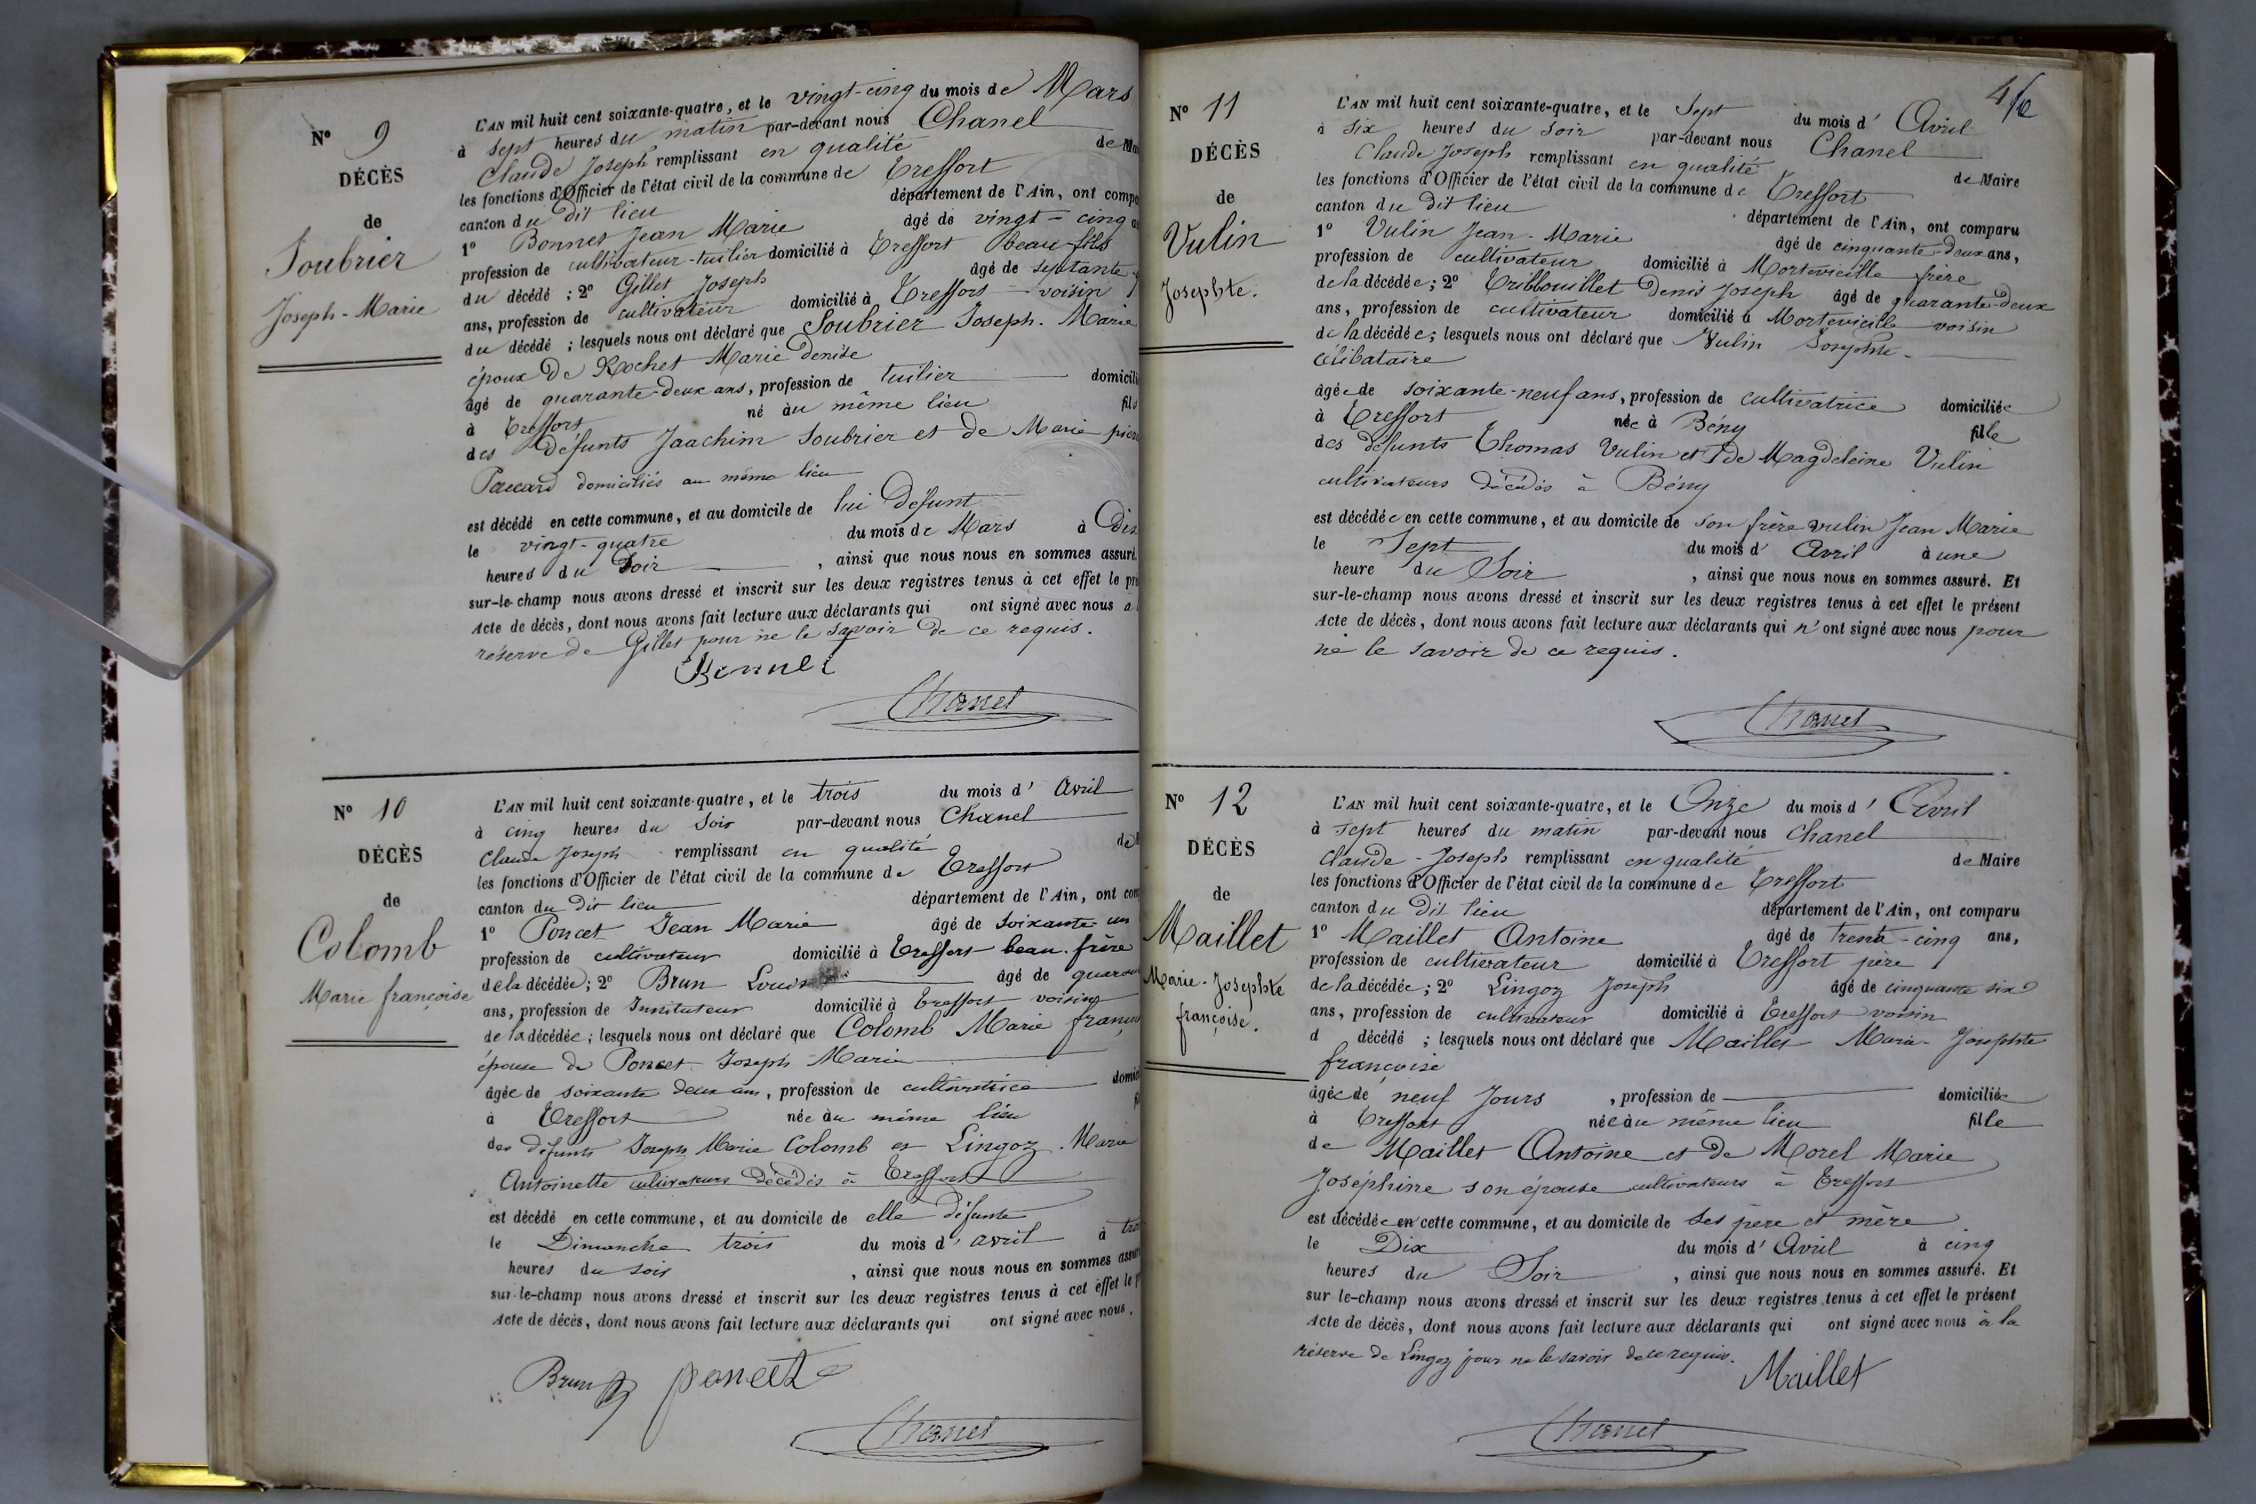 N° 9
DÉCÈS
de
Soubrier
Joseph-Marie
L'AN mil huit cent soixante-quatre, et le vingt-cinq du mois de Mars
à sept heures du matin par-devant nous Chanel
Claude Joseph remplissant en qualité de Ma
les fonctions d'Officier de l'état civil de la commune de Treffort
canton du dit lieu département de l'Ain, ont compa
1° Bonnet Jean Marie âgé de vingt-cinq
profession de cultivateur-tuilier domicilié à Treffort beau-fils
du décédé ; 2° Gillet Joseph âgé de septante
ans, profession de cultivateur domicilié à Treffort voisin
du décédé ; lesquels nous ont déclaré que Soubrier Joseph-Marie
époux de Rochet Marie Denise
âgé de quarante-deux ans, profession de tuilier domicili
à Treffort né au même lieu fils
des défunts Jaachim Soubrier et de Marie
Paccard domiciliés au même lieu
est décédé en cette commune, et au domicile de lui défunt
le vingt-quatre du mois de Mars à Dix
heures du Soir , ainsi que nous nous en sommes assuré.
sur-le-champ nous avons dressé et inscrit sur les deux registres tenus à cet effet le pr
Acte de décès, dont nous avons fait lecture aux déclarants qui ont signé avec nous a
réserve de Gillet pour ne le savoir de ce requis.
Bonnet
Chanel
N° 10
DÉCÈS
de
Colomb
Marie françoise
L'AN mil huit cent soixante-quatre, et le trois du mois d'avril
à cinq heures du soir par-devant nous Chanel
Claude Joseph remplissant en qualité de
les fonctions d'Officier de l'état civil de la commune de Treffort
canton du dit lieu département de l'Ain, ont com
1° Poncet Jean Marie âgé de soixante un
profession de cultivateur domicilié à Treffort beau-frère
de la décédée ; 2° Brun Louis âgé de quaran
ans, profession de Instituteur domicilié à Treffort voisin
de la décédée ; lesquels nous ont déclaré que Colomb Marie françois
épouse de Poncet Joseph Marie
âgée de soixante deux ans, profession de cultivatrice domici
à Treffort née au même lieu
des défunts Joseph Marie Colomb et Lingoz Marie
Antoinette cultivateurs décédés à Treffort
est décédé en cette commune, et au domicile de elle défunte
le Dimanche trois du mois d'avril à troi
heures du soir , ainsi que nous nous en sommes assuré
sur-le-champ nous avons dressé et inscrit sur les deux registres tenus à cet effet le p
Acte de décès, dont nous avons fait lecture aux déclarants qui ont signé avec nous.
Brun Poncet
Chanel
N° 11
DÉCÈS
de
Vulin
Josephte.
L'AN mil huit cent soixante-quatre, et le Sept du mois d'Avril
à six heures du soir par-devant nous Chanel
Claude Joseph remplissant en qualité de Maire
les fonctions d'Officier de l'état civil de la commune de Treffort
canton du dit lieu département de l'Ain, ont comparu
1° Vulin Jean-Marie âgé de cinquante-deux ans,
profession de cultivateur domicilié à Mortevieille frère
de la décédée ; 2° Tribbouillet Denis Joseph âgé de quarante-deux
ans, profession de cultivateur domicilié à Mortevieille voisin
de la décédée ; lesquels nous ont déclaré que Vulin Josephte
célibataire
âgée de soixante-neuf ans, profession de cultivatrice domiciliée
à Treffort née à Bény fille
des défunts Thomas Vulin et de Magdeleine Vulin
cultivateurs décédés à Bény
est décédée en cette commune, et au domicile de son frère vulin Jean Marie
le Sept du mois d'Avril à une
heure du Soir , ainsi que nous nous en sommes assuré. Et
sur-le-champ nous avons dressé et inscrit sur les deux registres tenus à cet effet le présent
Acte de décès, dont nous avons fait lecture aux déclarants qui n'ont signé avec nous pour
ne le savoir de ce requis.
Chanel
N° 12
DÉCÈS
de
Maillet
Marie-Josephte
françoise.
L'AN mil huit cent soixante-quatre, et le Onze du mois d'Avril
à sept heures du matin par-devant nous Chanel
Claude-Joseph remplissant en qualité de Maire
les fonctions d'Officier de l'état civil de la commune de Treffort
canton du dit lieu département de l'Ain, ont comparu
1° Maillet Antoine âgé de trente-cinq ans,
profession de cultivateur domicilié à Treffort père
de la décédée ; 2° Lingoz Joseph âgé de cinquante six
ans, profession de cultivateur domicilié à Treffort voisin
d décédé ; lesquels nous ont déclaré que Maillet Marie-Josephte
françoise
âgée de neuf Jours , profession de domiciliée
à Treffort née au même lieu fille
de Maillet Antoine et de Morel Marie
Joséphine son épouse cultivateurs à Treffort
est décédée en cette commune, et au domicile de ses père et mère
le Dix du mois d'Avril à cinq
heures du Soir , ainsi que nous nous en sommes assuré. Et
sur le-champ nous avons dressé et inscrit sur les deux registres tenus à cet effet le présent
Acte de décès, dont nous avons fait lecture aux déclarants qui ont signé avec nous à la
réserve de Lingoz pour ne le savoir de ce requis.
Maillet
Chanel